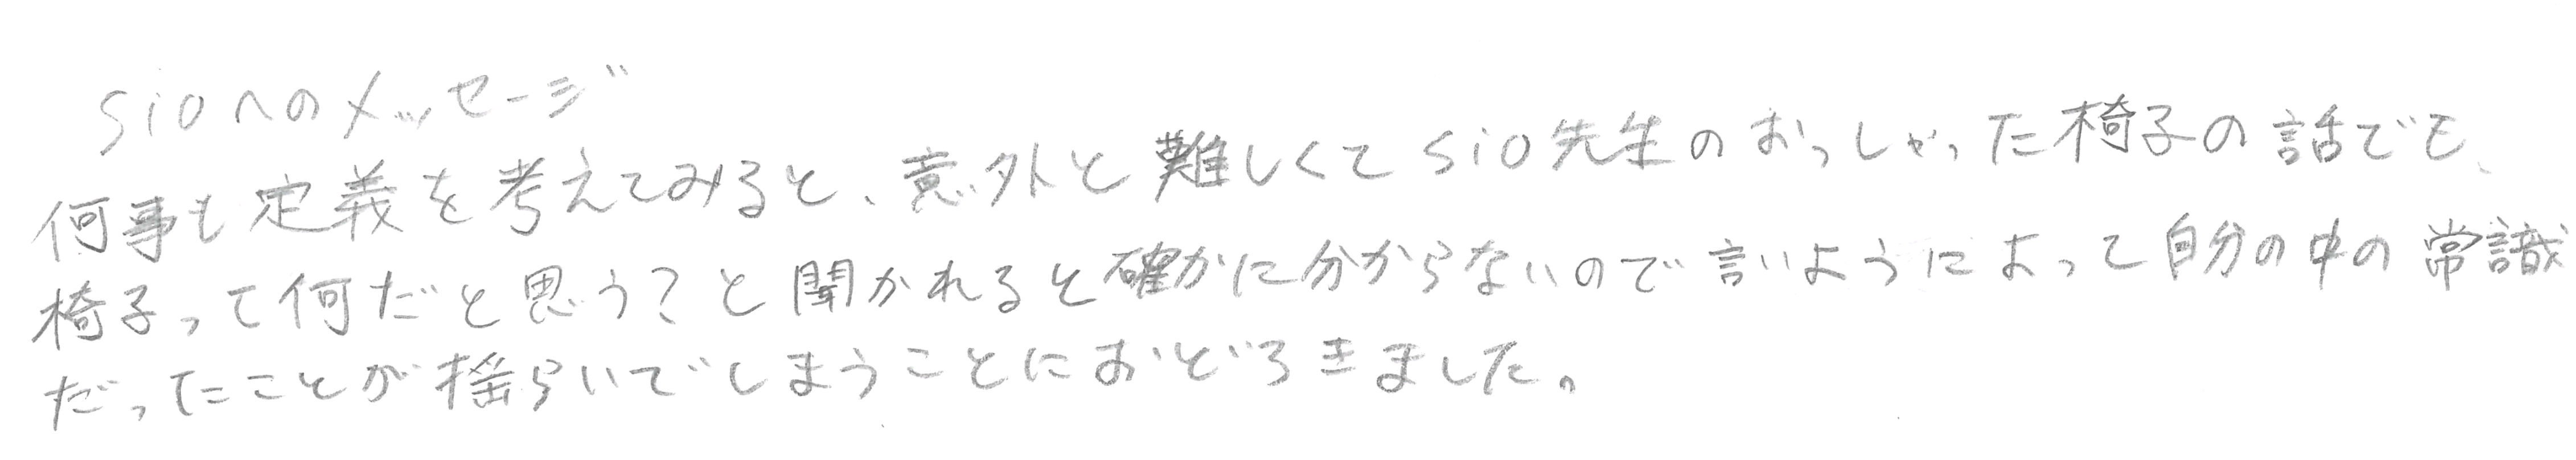 sioへのメッセージ
何事も定義を考えてみると、意外と難しくてsio先生のおっしゃった椅子の話でも、
椅子って何だと思う?と聞かれると確かに分からないので言いようによって自分の中の常識
だったことが揺らいでしまうことにおどろきました。